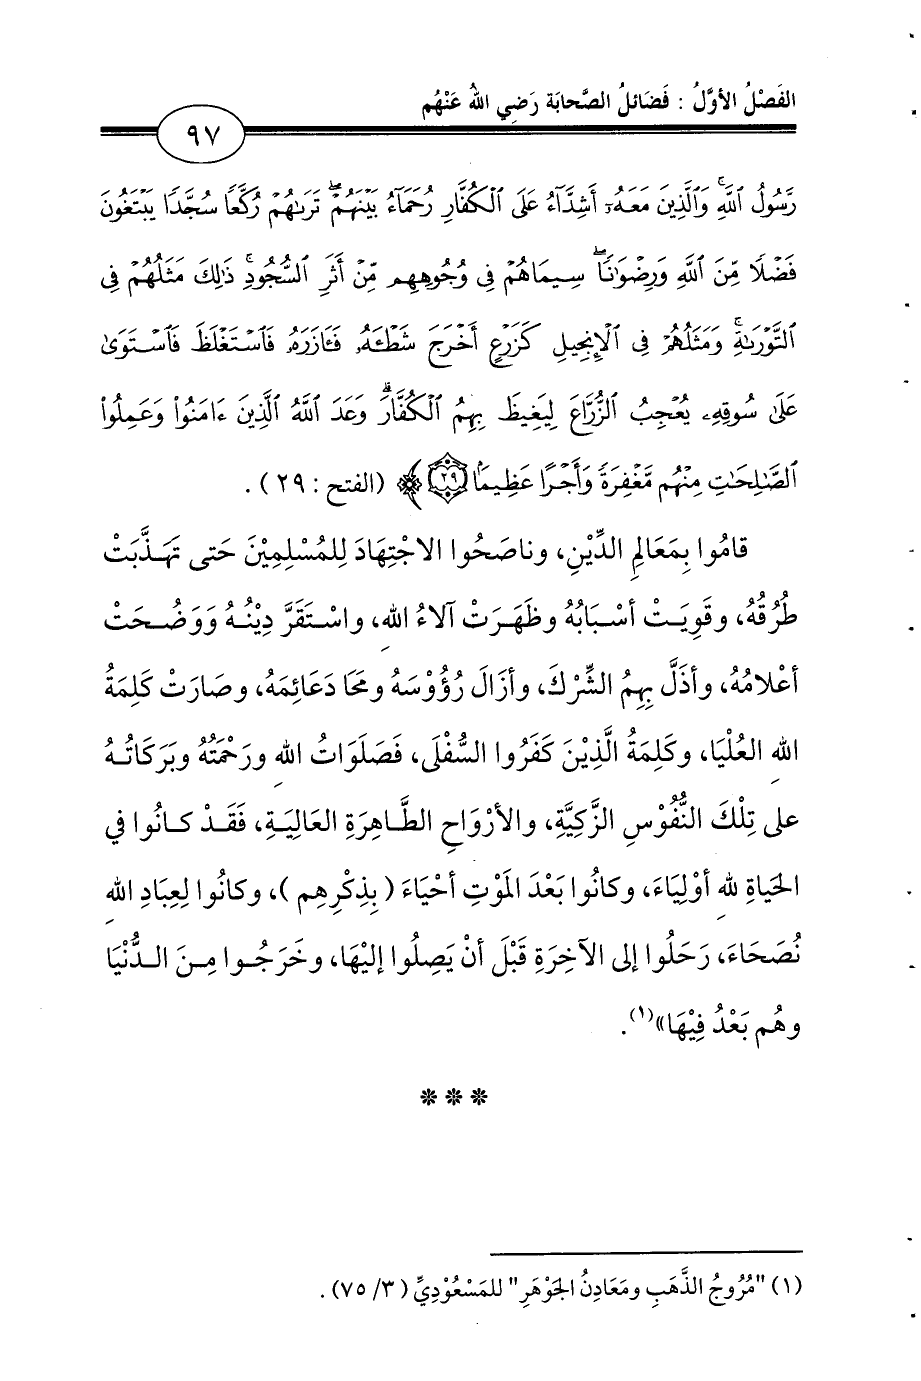 الفَصْلُ الأوَّلُ : فَضَائلُ الصَّحابَة رَضِي اللهُ عَنْهُم
٩٧
رَّسُولُ ٱللَّهِۚ وَٱلَّذِينَ مَعَهُۥٓ أَشِدَّآءُ عَلَى ٱلْكُفَّارِ رُحَمَآءُ بَيْنَهُمْۖ تَرَىٰهُمْ رُكَّعًا سُجَّدًا يَبْتَغُونَ
فَضْلًا مِّنَ ٱللَّهِ وَرِضْوَٰنًاۖ سِيمَاهُمْ فِى وُجُوهِهِم مِّنْ أَثَرِ ٱلسُّجُودِۚ ذَٰلِكَ مَثَلُهُمْ فِى
ٱلتَّوْرَىٰةِۚ وَمَثَلُهُمْ فِى ٱلْإِنجِيلِ كَزَرْعٍ أَخْرَجَ شَطْـَٔهُۥ فَـَٔازَرَهُۥ فَٱسْتَغْلَظَ فَٱسْتَوَىٰ
عَلَىٰ سُوقِهِۦ يُعْجِبُ ٱلزُّرَّاعَ لِيَغِيظَ بِهِمُ ٱلْكُفَّارَۗ وَعَدَ ٱللَّهُ ٱلَّذِينَ ءَامَنُوا۟ وَعَمِلُوا۟
ٱلصَّـٰلِحَـٰتِ مِنْهُم مَّغْفِرَةً وَأَجْرًا عَظِيمًۢا ٢٩ ﴾ (الفتح : ٢٩) .
قامُوا بِمَعَالِمِ الدِّيْنِ، وناصَحُوا الاجْتِهَادَ لِلمُسْلِمِيْنَ حَتى تهَذَّبَتْ
طُرُقُهُ، وقَوِيَتْ أسْبَابُهُ وظَهَرَتْ آلاءُ اللهِ، واسْتَقَرَّ دِيْنُهُ وَوَضُحَتْ
أعْلامُهُ، وأذَلَّ بِهِمُ الشِّرْكَ، وأزَالَ رُؤُوْسَهُ ومَحَا دَعَائِمَهُ، وصَارَتْ كَلِمَةُ
اللهِ العُلْيَا، وكَلِمَةُ الَّذِيْنَ كَفَرُوا السُّفْلَى، فَصَلَوَاتُ اللهِ ورَحْمَتُهُ وبَرَكَاتُهُ
على تِلْكَ النُّفُوْسِ الزَّكِيَّةِ، والأرْوَاحِ الطَّاهِرَةِ العَالِيَةِ، فَقَدْ كانُوا في
الحَيَاةِ للهِ أوْلِيَاءَ، وكانُوا بَعْدَ المَوْتِ أحْيَاءَ (بِذِكْرِهِم)، وكانُوا لِعِبَادِ اللهِ
نُصَحَاءَ، رَحَلُوا إلى الآخِرَةِ قَبْلَ أنْ يَصِلُوا إليْهَا، وخَرَجُوا مِنَ الدُّنْيَا
وهُم بَعْدُ فِيْهَا»(١).
***
(١) "مُرُوجُ الذَّهَبِ ومَعَادِنُ الجَوْهَرِ" للمَسْعُوْدِيِّ (٣/ ٧٥) .